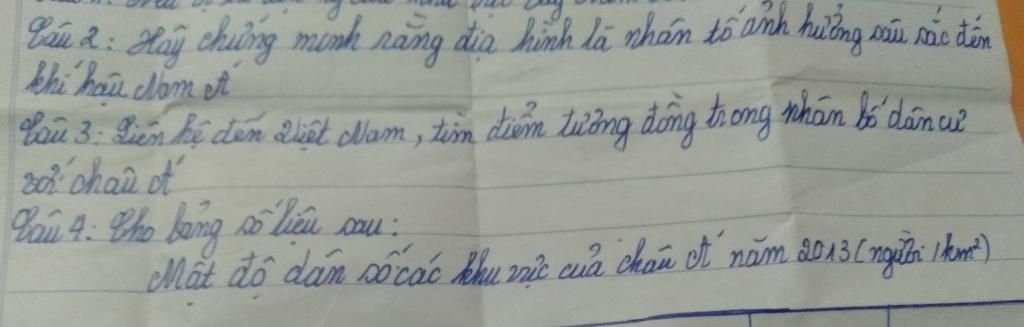 Câu 2: Hãy chứng minh rằng địa hình là nhân tố ảnh hưởng sâu sắc đến
khí hậu Nam Á
Câu 3: Liên hệ đến Việt Nam, tìm điểm tương đồng trong phân bố dân cư
với châu Á
Câu 4: Cho bảng số liệu sau:
Mật độ dân số các khu vực của châu Á năm 2013 (người/km²)